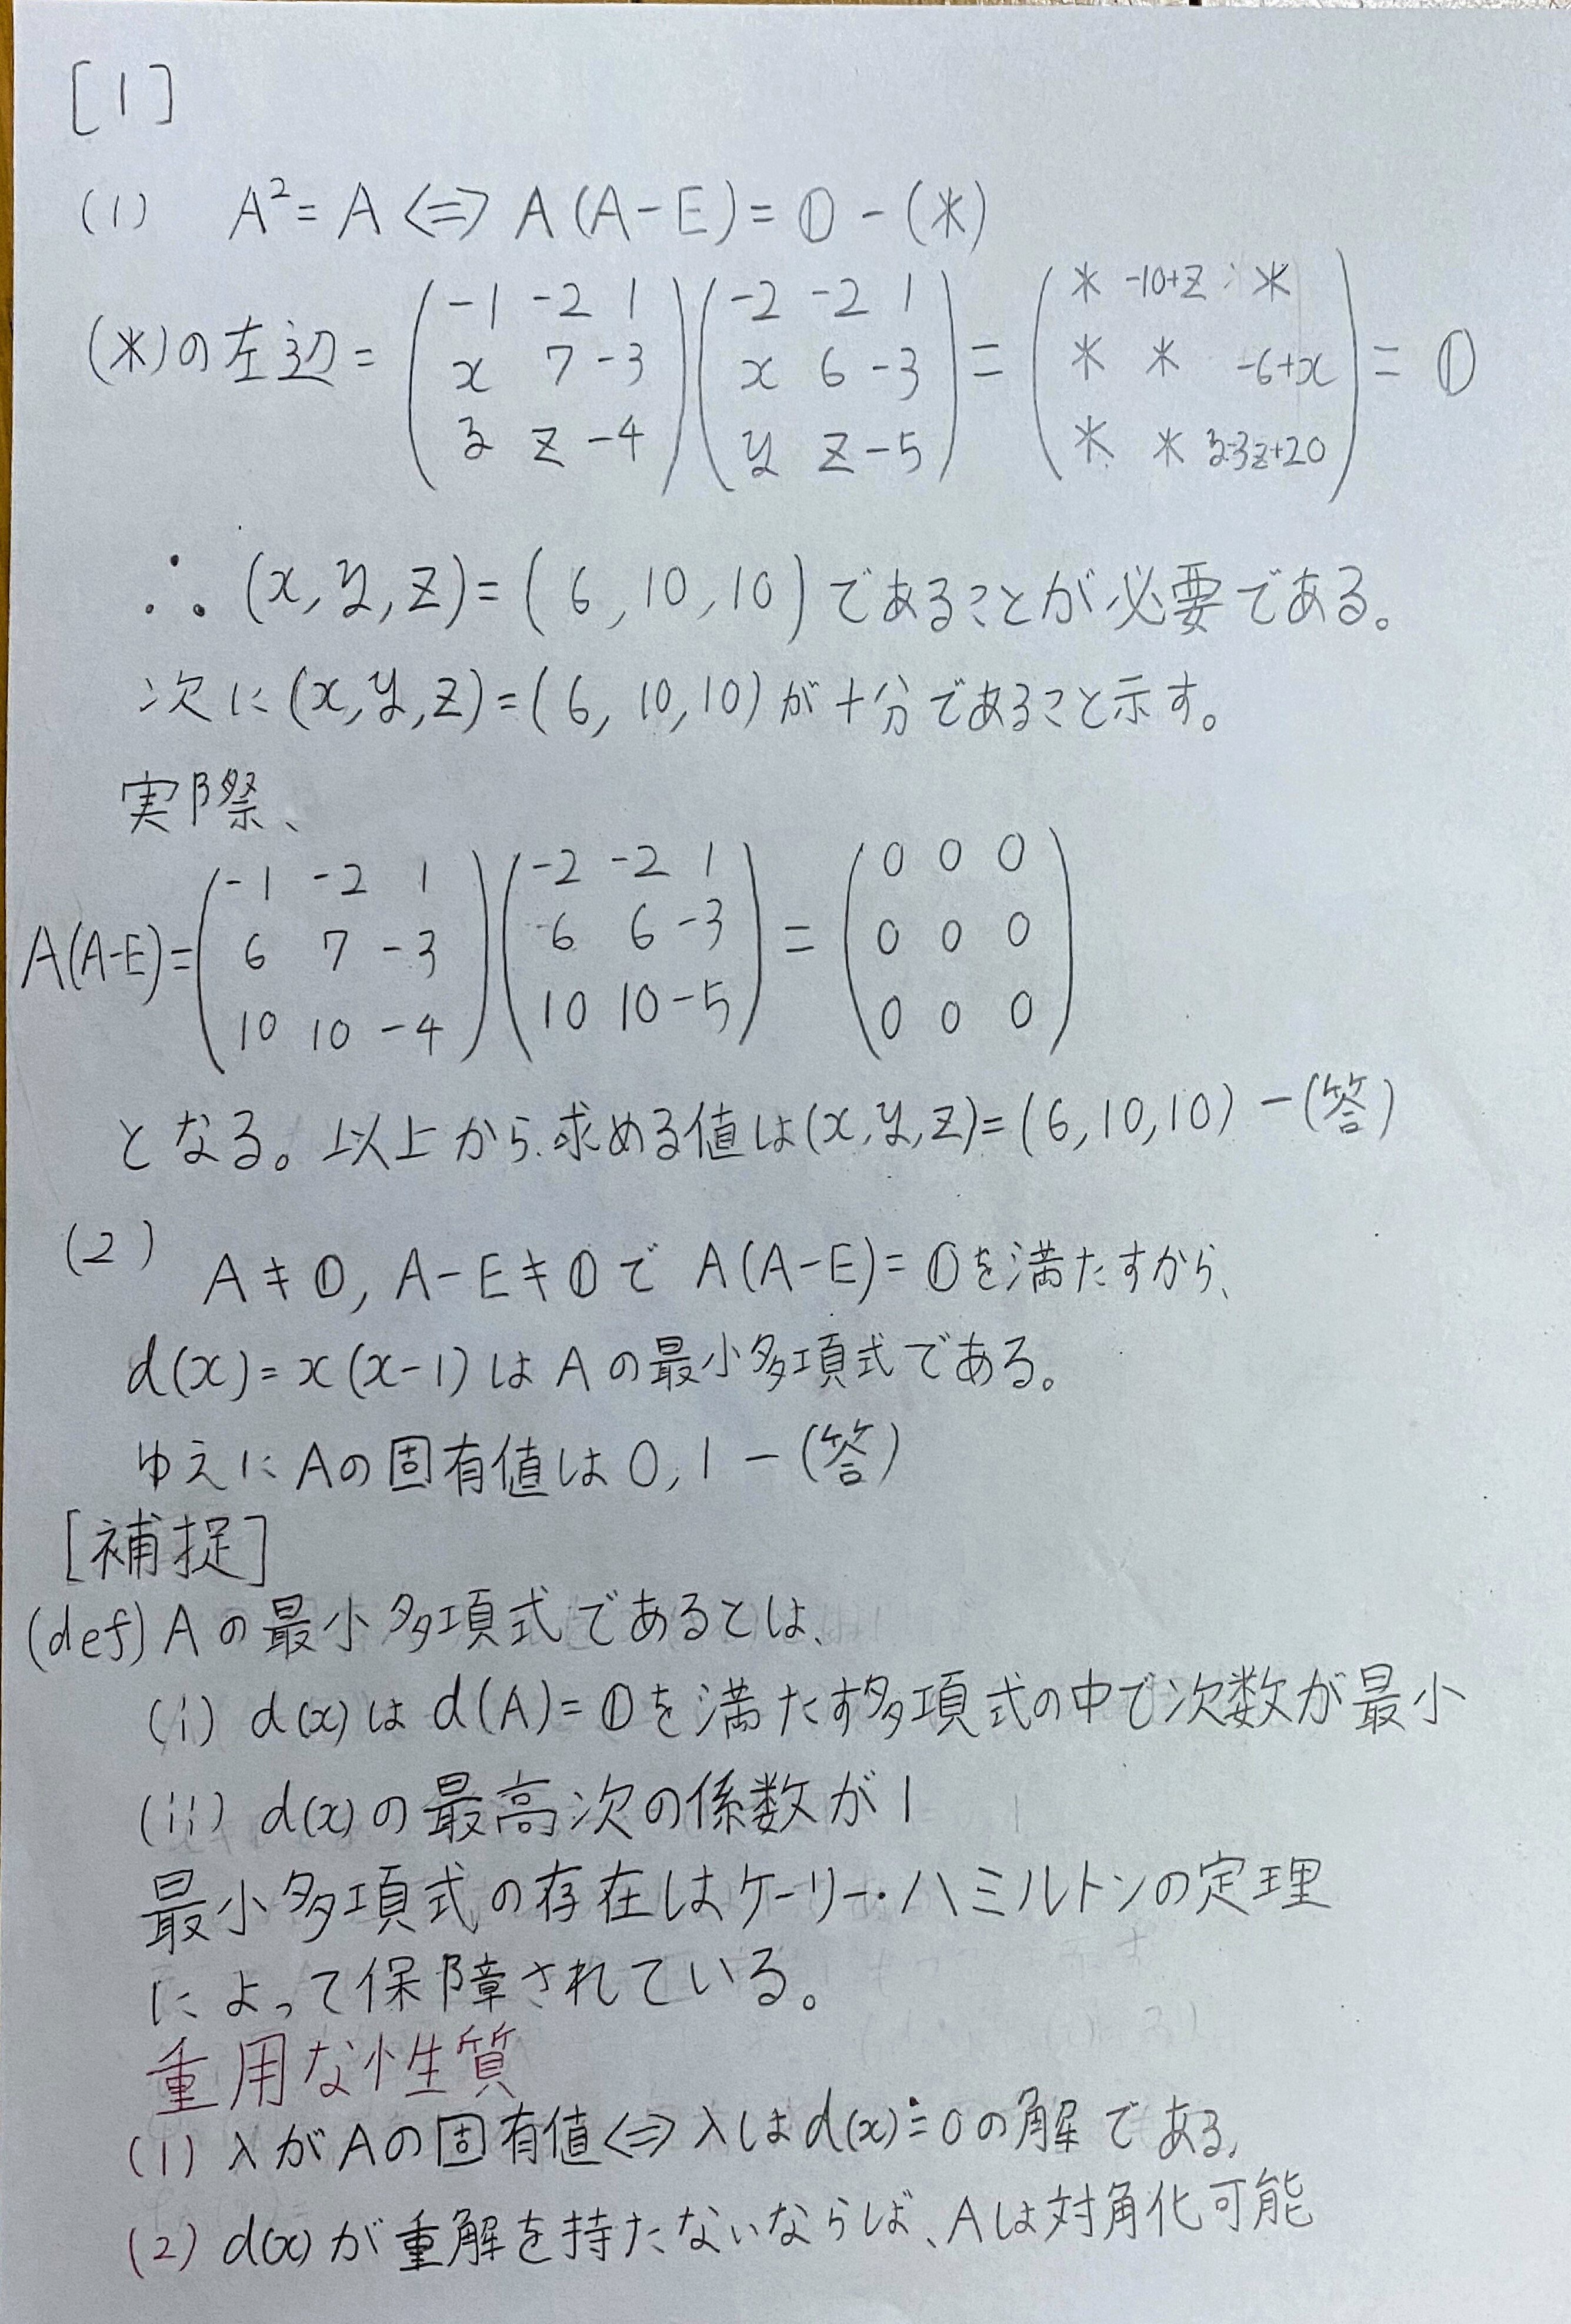 [1]
(1) A² = A ⇔ A(A-E) = O - (*)
(*)の左辺 = (-1 -2 1 / x 7 -3 / y z -4)(-2 -2 1 / x 6 -3 / y z -5) = (* -10+z * / * * -6+x / * * y-3z+20) = O
∴ (x, y, z) = (6, 10, 10) であることが必要である。
次に (x, y, z) = (6, 10, 10) が十分であること示す。
実際、
A(A-E) = (-1 -2 1 / 6 7 -3 / 10 10 -4)(-2 -2 1 / 6 6 -3 / 10 10 -5) = (0 0 0 / 0 0 0 / 0 0 0)
となる。以上から、求める値は (x, y, z) = (6, 10, 10) - (答)
(2) A ≠ O, A-E ≠ O で A(A-E) = O を満たすから、
d(x) = x(x-1) は A の最小多項式である。
ゆえに Aの固有値は 0, 1 - (答)
[補捉]
(def) A の最小多項式であるとは、
(i) d(x) は d(A) = O を満たす多項式の中で次数が最小
(ii) d(x) の最高次の係数が 1
最小多項式の存在はケーリー・ハミルトンの定理
によって保障されている。
重用な性質
(1) λがAの固有値 ⇔ λは d(x) = 0 の解である。
(2) d(x) が重解を持たないならば、Aは対角化可能